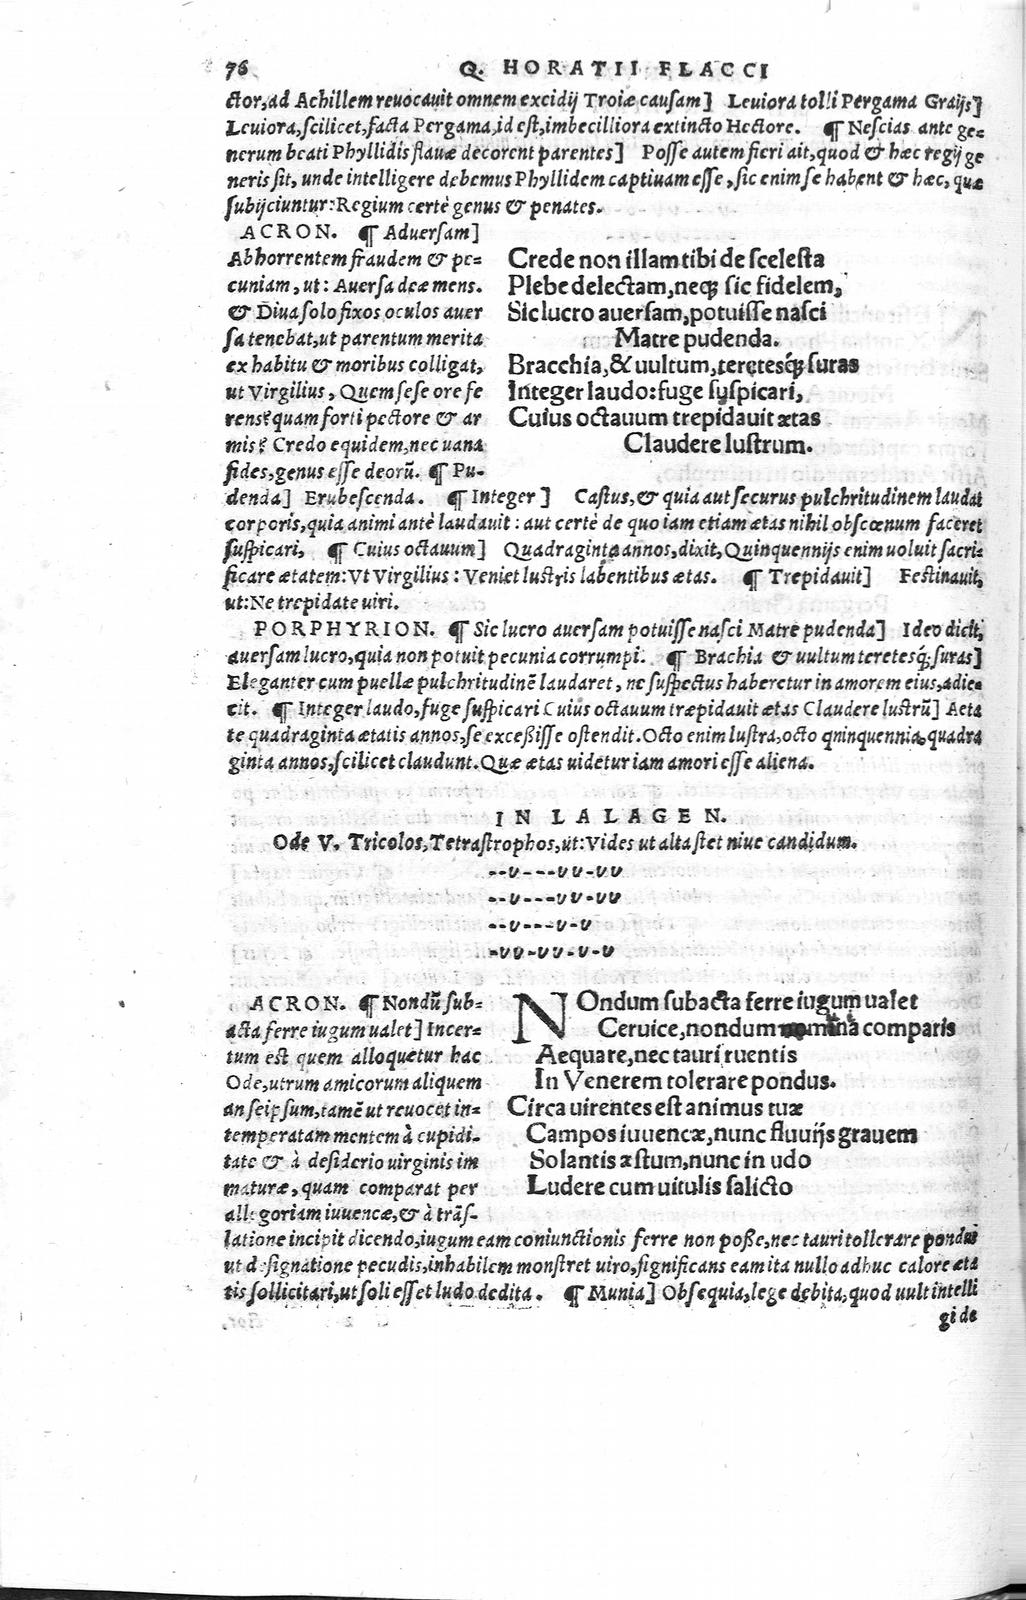 76 Q. HORATII FLACCI
ctor, ad Achillem reuocauit omnem excidij Troiæ causam] Leuiora tolli Pergama Graijs]
Leuiora, scilicet, facta Pergama, id est, imbecilliora extincto Hectore. ¶ Nescias an te ge=
nerum beati Phyllidis flauæ decorent parentes] Posse autem fieri ait, quod & hæc regij ge
neris sit, unde intelligere debemus Phyllidem captiuam esse, sic enim se habent & hæc, quæ
subijciuntur: Regium certè genus & penates.
ACRON. ¶ Aduersam]
Abhorrentem fraudem & pe=
cuniam, ut: Auersa deæ mens.
& Diua solo fixos oculos auer
sa tenebat, ut parentum merita
ex habitu & moribus colligat,
ut Virgilius, Quem sese ore fe
rens? quam forti pectore & ar
mis? Credo equidem, nec uana
fides, genus esse deorũ. ¶ Pu-
Crede non illam tibi de scelesta
Plebe delectam, neq; sic fidelem,
Sic lucro auersam, potuisse nasci
Matre pudenda.
Bracchia, & uultum, teretesq́; suras
Integer laudo: fuge suspicari,
Cuius octauum trepidauit ætas
Claudere lustrum.
denda] Erubescenda. ¶ Integer] Castus, & quia aut securus pulchritudinem laudat
corporis, quia animi antè laudauit: aut certè de quo iam etiam ætas nihil obscœnum faceret
suspicari, ¶ Cuius octauum] Quadraginta annos, dixit, Quinquennijs enim uoluit sacri-
ficare ætatem: Vt Virgilius: Veniet lustris labentibus ætas. ¶ Trepidauit] Festinauit,
ut: Ne trepidate uiri.
PORPHYRION. ¶ Sic lucro auersam potuisse nasci Matre pudenda] Ideo dicit,
auersam lucro, quia non potuit pecunia corrumpi. ¶ Brachia & uultum teretesq́; suras]
Eleganter cum puellæ pulchritudinẽ laudaret, ne suspectus haberetur in amorem eius, adie=
cit. ¶ Integer laudo, fuge suspicari Cuius octauum træpidauit ætas Claudere lustrũ] Aeta
te quadraginta ætatis annos, se excessisse ostendit. Octo enim lustra, octo qninquennia, quadra
ginta annos, scilicet claudunt. Quæ ætas uidetur iam amori esse aliena.
IN LALAGEN.
Ode V. Tricolos, Tetrastrophos, ut: Vides ut alta stet niue candidum.
--υ---υυ-υυ
--υ---υυ-υυ
--υ---υ-υ
-υυ-υυ-υ-υ
ACRON. ¶ Nondũ sub-
acta ferre iugum ualet] Incer=
tum est quem alloquetur hac
Ode, utrum amicorum aliquem
an seipsum, tamẽ ut reuocet in=
temperatam mentem à cupidi-
tate & à desiderio uirginis im
maturæ, quam comparat per
allegoriam iuuencæ, & à trãs-
NOndum subacta ferre iugum ualet
Ceruice, nondum comparis
Aequare, nec tauri ruentis
In Venerem tolerare pondus.
Circa uirentes est animus tuæ
Campos iuuencæ, nunc fluuijs grauem
Solantis æstum, nunc in udo
Ludere cum uitulis salicto
latione incipit dicendo, iugum eam coniunctionis ferre non posse, nec tauri tollerare pondus
ut designatione pecudis, inhabilem monstret uiro, significans eam ita nullo adhuc calore æta
tis sollicitari, ut soli esset ludo dedita. ¶ Munia] Obsequia, lege debita, quod uult intelli
gi de